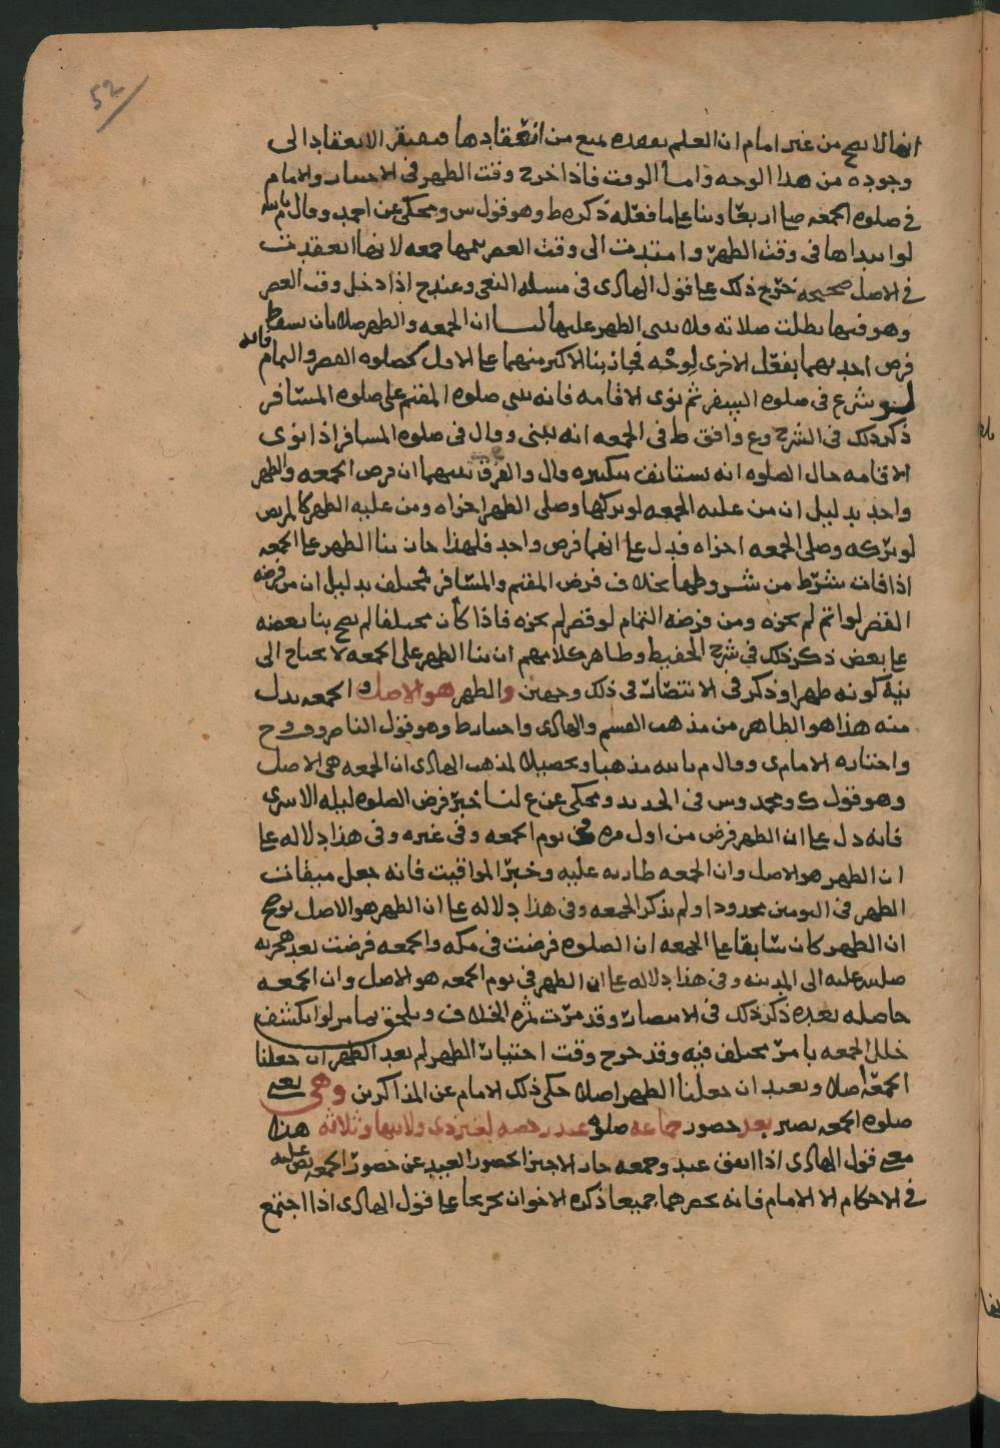 52
انها لا تصح من غير امام ان العلم بعدمه يمنع من انعقادها فيفتقر الانعقاد الى
وجوده من هذا الوجه واما الوقت فاذا خرج وقت الظهر في الاختيار والامام
في صلوه الجمعه صلا اربعا وبنا على ما فعله ذكره ط وهو قول س ويحكى عن احمد وقال م بالله
لو ابتداها في وقت الظهر وامتدت الى وقت العصر يتمها جمعه لانها انعقدت
في الاصل صحيحه خرج ذلك على قول الهادى في مسله النعى وعند ح اذا دخل وقت العصر
وهو فيها بطلت صلاته ولا يبنى الظهر عليها لنا ان الجمعه والظهر صلاتان يسقط
فرض احديهما بفعل الاخرى لوجه فجاز بنا الاكثر منهما على الاول كصلوه القصر والتمام فانه
لو شرع في صلوه السفر ثم نوى الاقامه فانه يبنى صلوه المقيم على صلوه المسافر
ذكر ذلك في الشرح وع وافق ط في الجمعه انه يبنى وقال في صلوه المسافر اذا نوى
الاقامه حال الصلوه انه يستانف بتكبيره قال والفرق بينهما ان فرض الجمعه والظهر
واحد بدليل ان من عليه الجمعه لو تركها وصلى الظهر اجزاه ومن عليه الظهر كالمريض
لو تركه وصلى الجمعه اجزاه فدل على انهما فرض واحد فلهذا جاز بنا الظهر على الجمعه
اذا فات شرط من شروطها بخلاف فرض المقيم والمسافر فمختلف بدليل ان من فرضه
القصر لو اتم لم يجزه ومن فرضه التمام لو قصر لم يجزه فاذا كان مختلفا لم يصح بنا بعضه
على بعض ذكر ذلك في شرح الحفيظ وظاهر كلامهم ان بنا الظهر على الجمعه لا يحتاج الى
نيه كونه ظهرا وذكر في الانتصار في ذلك وجهين والظهر هو الاصل و الجمعه بدل
منه هذا هو الظاهر من مذهب القسم والهادى واختيار ط وهو قول الناصر و ح
واختاره الامام ى وقال م بالله مذهبا وتحصيلا لمذهب الهادى ان الجمعه هي الاصل
وهو قول ك ومحمد وس في الجديد ويحكى عن ع لنا خبر فرض الصلوه ليله الاسرى
فانه دل على ان الظهر فرض من اول مره في يوم الجمعه وفي غيره وفي هذا دلاله على
ان الظهر هو الاصل وان الجمعه طاريه عليه وخبر المواقيت فانه جعل ميقات
الظهر في اليومين محدودا ولم يذكر الجمعه وفي هذا دلاله على ان الظهر هو الاصل يوضح
ان الظهر كان سابقا على الجمعه ان الصلوه فرضت في مكه والجمعه فرضت بعد هجرته
صلى الله عليه الى المدينه وفي هذا دلاله على ان الظهر في يوم الجمعه هو الاصل وان الجمعه
حاصله بعده ذكر ذلك في الانتصار وقد مرت ثمره الخلاف ويلحق بما مر لو انكشف
خلل الجمعه بامر مختلف فيه وقد خرج وقت اختيار الظهر لم يعد الظهر ان جعلنا
الجمعه اصلا ويعيد ان جعلنا الظهر اصلا حكى ذلك الامام عن المذاكرين وهي يعني
صلوه الجمعه تصير بعد حضور جماعه صلوه عيد رخصه لغير ذى ولايتها وثلاثه هذا
معنى قول الهادى اذا اتفق عيد وجمعه جاز الاجتزا بحضور العيد عن حضور الجمعه نص عليه
في الاحكام الا الامام فانه يحضرهما جميعا ذكره الاخوان تخريجا على قول الهادى اذا اجتمع